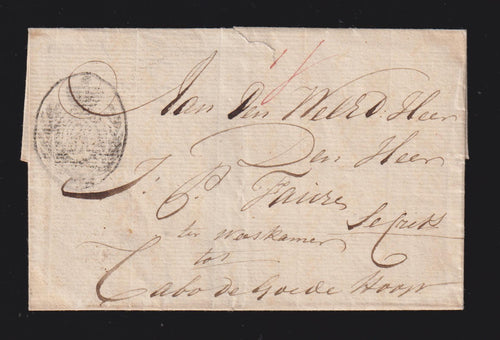 Aan Den Weled. Heer
Den Heer
J. P. Faure
Secrets.
ter Weeskamer
tot
Cabo de Goede Hoop